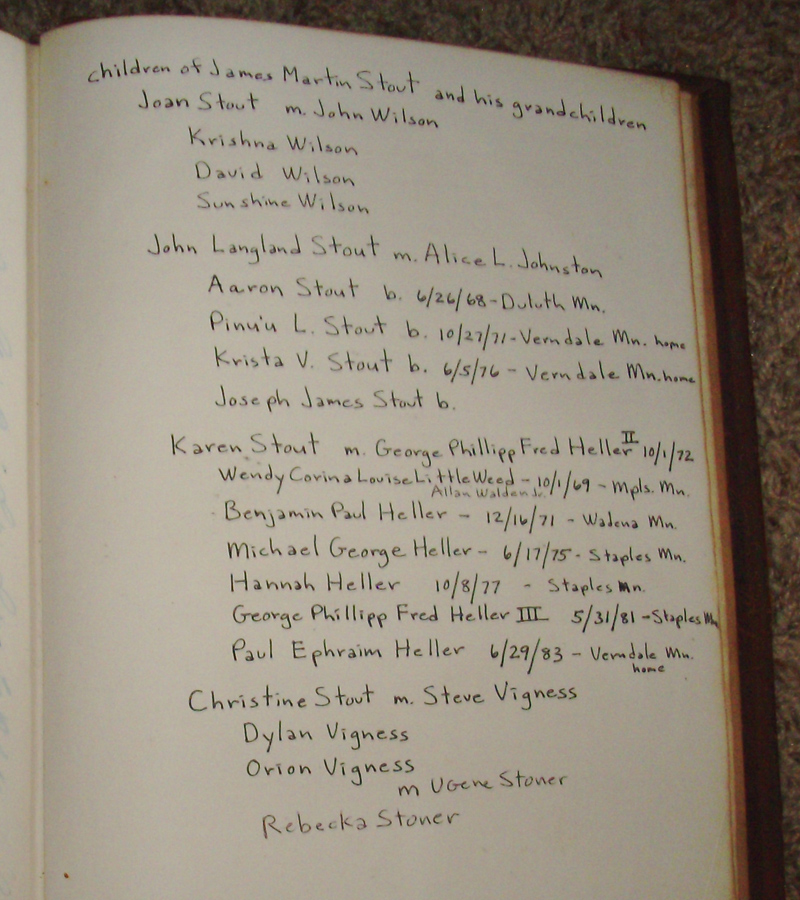 children of James Martin Stout and his grandchildren
Joan Stout m. John Wilson
Krishna Wilson
David Wilson
Sunshine Wilson
John Langland Stout m. Alice L. Johnston
Aaron Stout b. 6/26/68-Duluth Mn.
Pinu'u L. Stout b. 10/27/71-Verndale Mn. home
Krista V. Stout b. 6/5/76 - Verndale Mn. home
Joseph James Stout b.
Karen Stout m. George Phillipp Fred Heller II 10/1/72
Wendy Corina Louise LittleWeed - 10/1/69 - Mpls. Mn.
Allan Walden Jr.
Benjamin Paul Heller - 12/16/71 - Wadena Mn.
Michael George Heller - 6/17/75 - Staples Mn.
Hannah Heller 10/8/77 - Staples Mn.
George Phillipp Fred Heller III 5/31/81 - Staples Mn
Paul Ephraim Heller 6/29/83 - Verndale Mn.
home
Christine Stout m. Steve Vigness
Dylan Vigness
Orion Vigness
m UGene Stoner
Rebecka Stoner